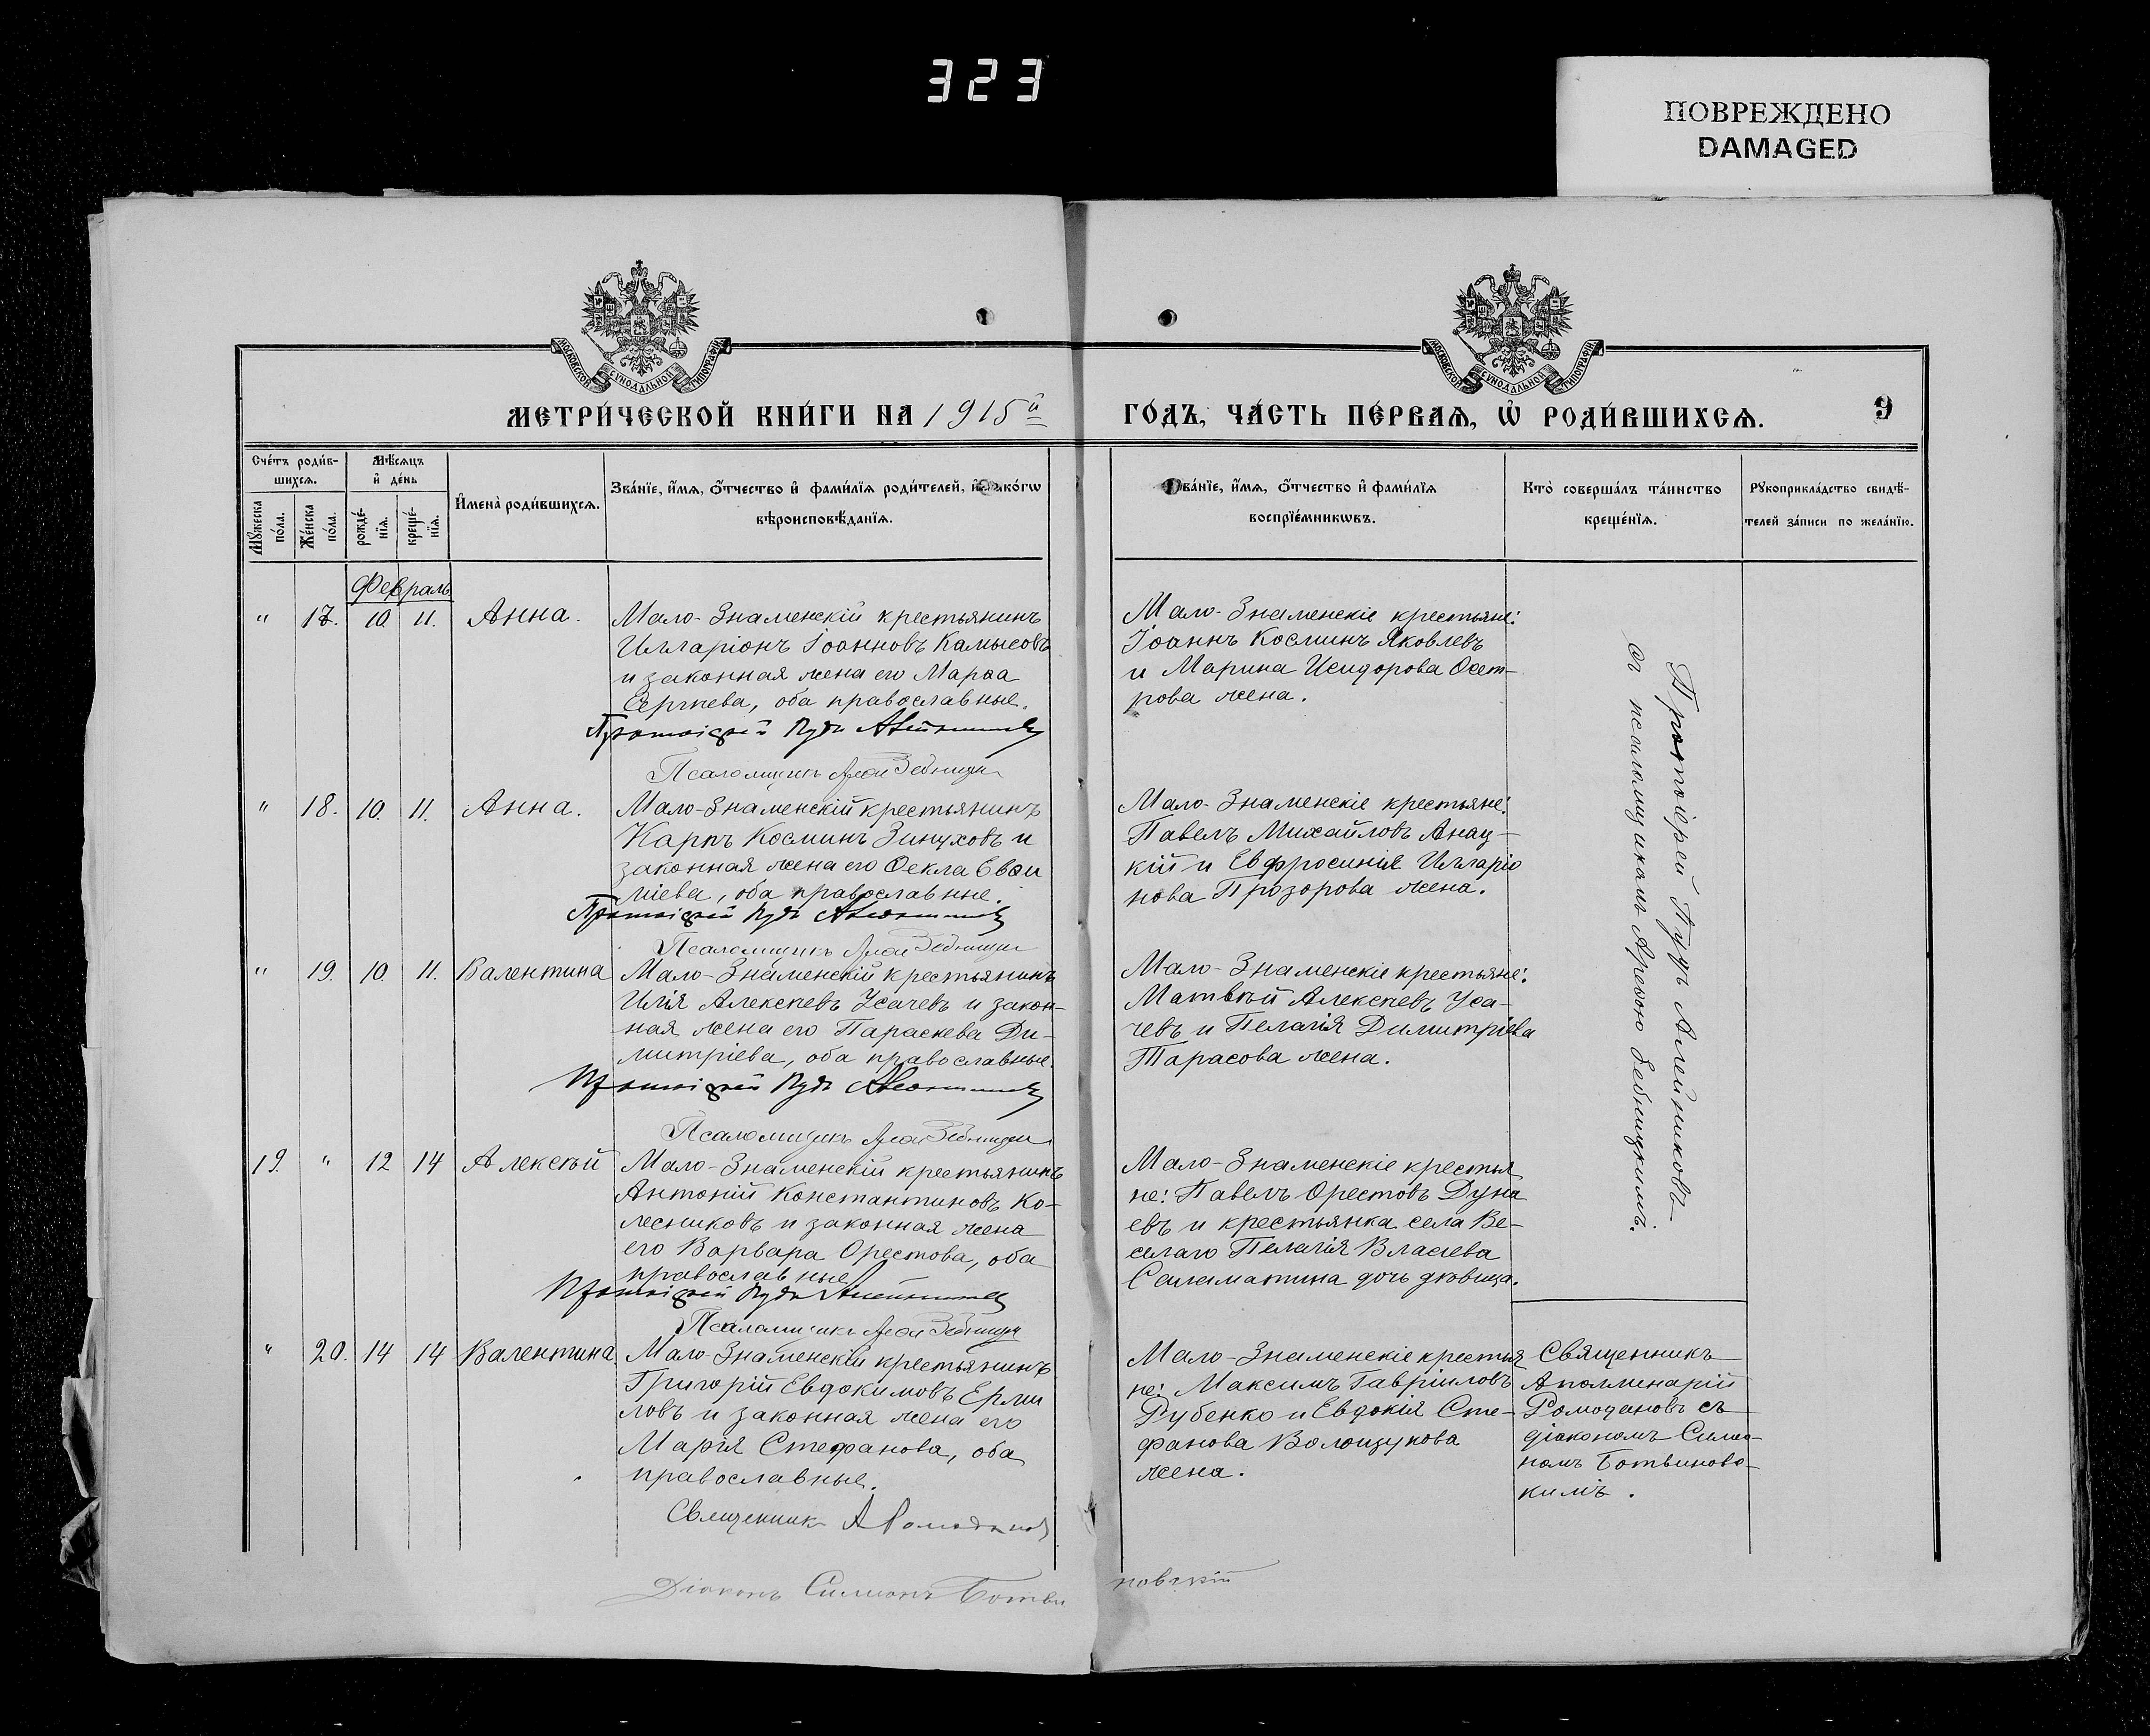 323
ПОВРЕЖДЕНО
DAMAGED
МОСКОВСКОЙ СУНОДАЛЬНОЙ ТИПОГРАФІИ
МОСКОВСКОЙ СУНОДАЛЬНОЙ ТИПОГРАФІИ
МЕТРИ́ЧЕСКОЙ КНИ́ГИ НА 1915й
ГО́ДЪ, ЧА́СТЬ ПЕ́РВАѦ, Ѽ РОДИ́ВШИХСѦ.
9
Сче́тъ роди́в-
шихсѧ.
Мꙋжеска по́ла.
Же́нска по́ла.
Мѣ́сѧцъ
и҆ де́нь
рожде́-
нїѧ.
креще́-
нїѧ.
И҆мена̀ роди́вшихсѧ.
Зва́нїе, и҆́мѧ, ѻ҆́тчество и҆ фами́лїѧ роди́телей, и҆ како́гѡ
вѣроисповѣ́данїѧ.
Зва́нїе, и҆́мѧ, ѻ҆́тчество и҆ фами́лїѧ
воспрїе́мникѡвъ.
Кто̀ соверша́лъ та́инство
креще́нїѧ.
Рꙋкоприкла́дство свидѣ́-
телей за́писи по жела́нїю.
Февраль
" 17. 10. 11. Анна.
Мало-Знаменскій крестьянинъ
Илларіонъ Іоанновъ Камысовъ
и законная жена его Марѳа
Сергѣева, оба православные.
Протоіерей Пудъ Алейниковъ
Псаломщикъ
Мало-Знаменскіе крестьяне:
Іоаннъ Косминъ Яковлевъ
и Марина Исидорова Осет-
рова жена.
" 18. 10. 11. Анна.
Мало-Знаменскій крестьянинъ
Карпъ Косминъ Зинуховъ и
законная жена его Ѳекла Евѳи
міева, оба православные.
Протоіерей Пудъ Алейниковъ
Псаломщикъ
Мало-Знаменскіе крестьяне:
Павелъ Михайловъ Анац-
кій и Евфросинія Илларіо
нова Прозорова жена.
" 19. 10. 11. Валентина
Мало-Знаменскій крестьянинъ
Илія Алексѣевъ Усачевъ и закон-
ная жена его Параскева Ди-
митріева, оба православные.
Протоіерей Пудъ Алейниковъ
Псаломщикъ
Мало-Знаменскіе крестьяне:
Матвѣй Алексѣевъ Уса-
чевъ и Пелагія Димитріева
Тарасова жена.
19. " 12 14 Алексѣй
Мало-Знаменскій крестьянинъ
Антоній Константиновъ Ко-
лесниковъ и законная жена
его Варвара Орестова, оба
православные
Протоіерей Пудъ Алейниковъ
Псаломщикъ
Мало-Знаменскіе крестья
не: Павелъ Орестовъ Дуна
евъ и крестьянка села Ве-
селаго Пелагія Власіева
Саламатина дочь дѣвица.
Протоіерей Пудъ Алейниковъ
съ псаломщикомъ Арефою Зебницкимъ.
" 20. 14 14 Валентина
Мало-Знаменскій крестьянинъ
Григорій Евдокимовъ Ерми
ловъ и законная жена его
Марія Стефанова, оба
православные.
Священникъ А Ромодановъ
Діаконъ Симеонъ Ботви
новскій
Мало-Знаменскіе крестья
не: Максимъ Гавріиловъ
Рубенко и Евдокія Сте-
фанова Волощукова
жена.
Священникъ
Аполлинарій
Ромодановъ съ
діакономъ Симео-
номъ Ботвиновс-
кимъ.